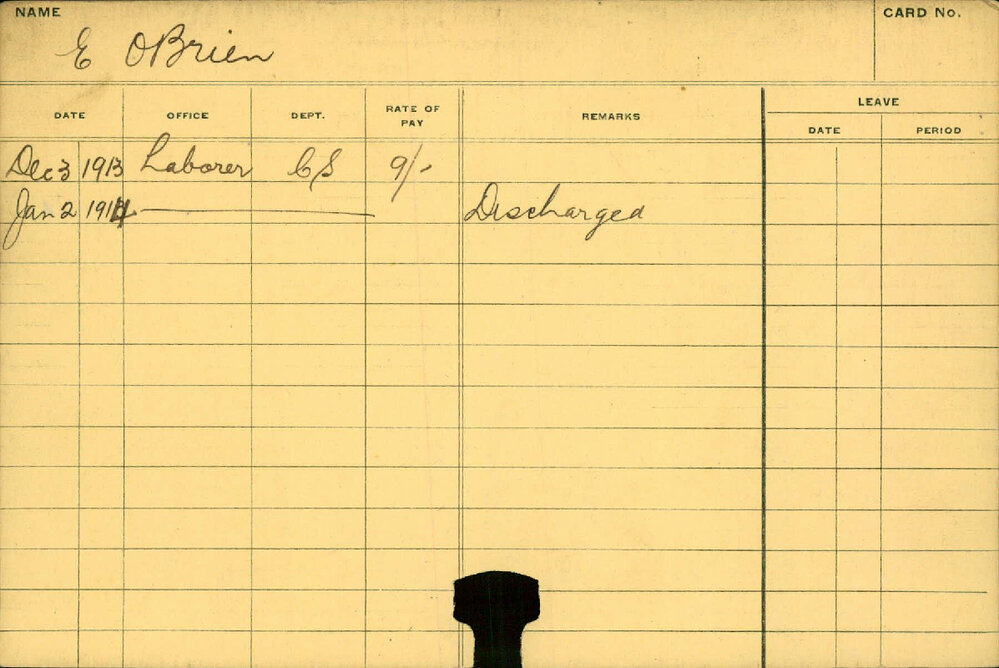 NAME
CARD No.
E OBrien
DATE OFFICE DEPT. RATE OF PAY REMARKS LEAVE
DATE PERIOD
Dec 3 1913 Laborer CS 9/-
Jan 2 1914 Discharged